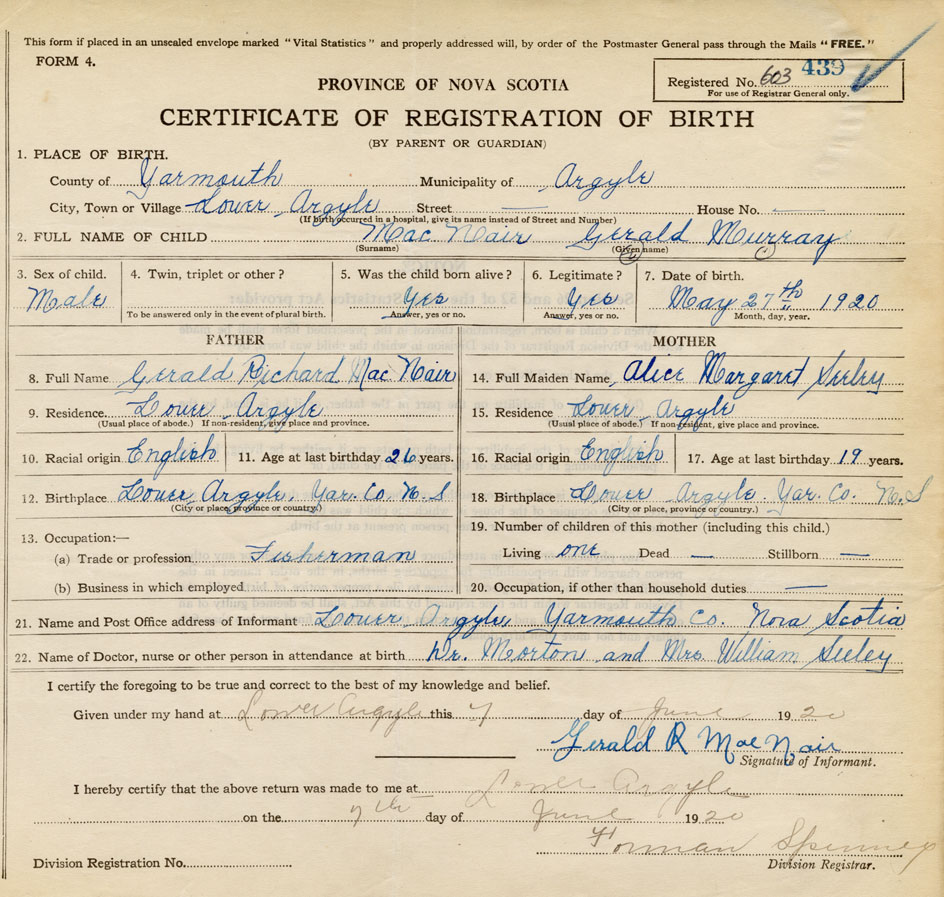 This form if placed in an unsealed envelope marked "Vital Statistics" and properly addressed will, by order of the Postmaster General pass through the Mails "FREE."
FORM 4.
Registered No. 603 439
For use of Registrar General only.
PROVINCE OF NOVA SCOTIA
CERTIFICATE OF REGISTRATION OF BIRTH
(BY PARENT OR GUARDIAN)
1. PLACE OF BIRTH.
County of Yarmouth Municipality of Argyle
City, Town or Village Lower Argyle Street — House No. —
(If birth occurred in a hospital, give its name instead of Street and Number)
2. FULL NAME OF CHILD Mac Nair Gerald Murray
(Surname) (Given name)
3. Sex of child. 4. Twin, triplet or other? 5. Was the child born alive? 6. Legitimate? 7. Date of birth.
Male Yes Yes May 27th 1920
To be answered only in the event of plural birth. Answer, yes or no. Answer, yes or no. Month, day, year.
FATHER MOTHER
8. Full Name Gerald Richard Mac Nair 14. Full Maiden Name Alice Margaret Seeley
9. Residence Lower Argyle 15. Residence Lower Argyle
(Usual place of abode.) If non-resident, give place and province. (Usual place of abode.) If non-resident, give place and province.
10. Racial origin English 11. Age at last birthday 26 years. 16. Racial origin English 17. Age at last birthday 19 years.
12. Birthplace Lower Argyle. Yar. Co. N.S 18. Birthplace Lower Argyle. Yar. Co. N.S
(City or place, province or country.) (City or place, province or country.)
13. Occupation:— 19. Number of children of this mother (including this child.)
(a) Trade or profession Fisherman Living one Dead — Stillborn —
(b) Business in which employed 20. Occupation, if other than household duties —
21. Name and Post Office address of Informant Lower Argyle Yarmouth Co. Nova Scotia
22. Name of Doctor, nurse or other person in attendance at birth Dr. Morton and Mrs William Seeley
I certify the foregoing to be true and correct to the best of my knowledge and belief.
Given under my hand at Lower Argyle this 7 day of June 1920
Gerald R MacNair
Signature of Informant.
I hereby certify that the above return was made to me at Lower Argyle
on the 7th day of June 1920
Forman Spinney
Division Registration No. Division Registrar.